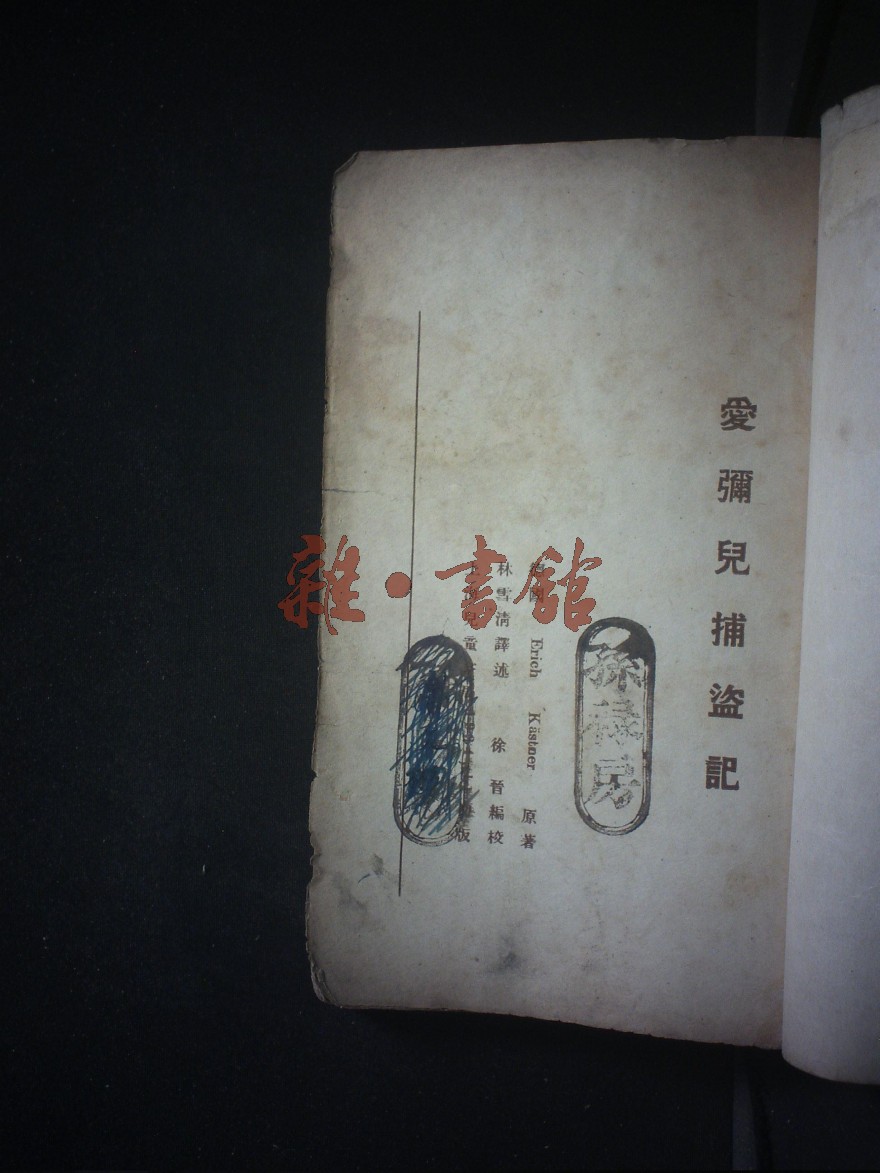 愛彌兒捕盜記
德國 Erich Kästner 原著
林雪清譯述 徐晉編校
兒童 版
孫 房
雜·書館